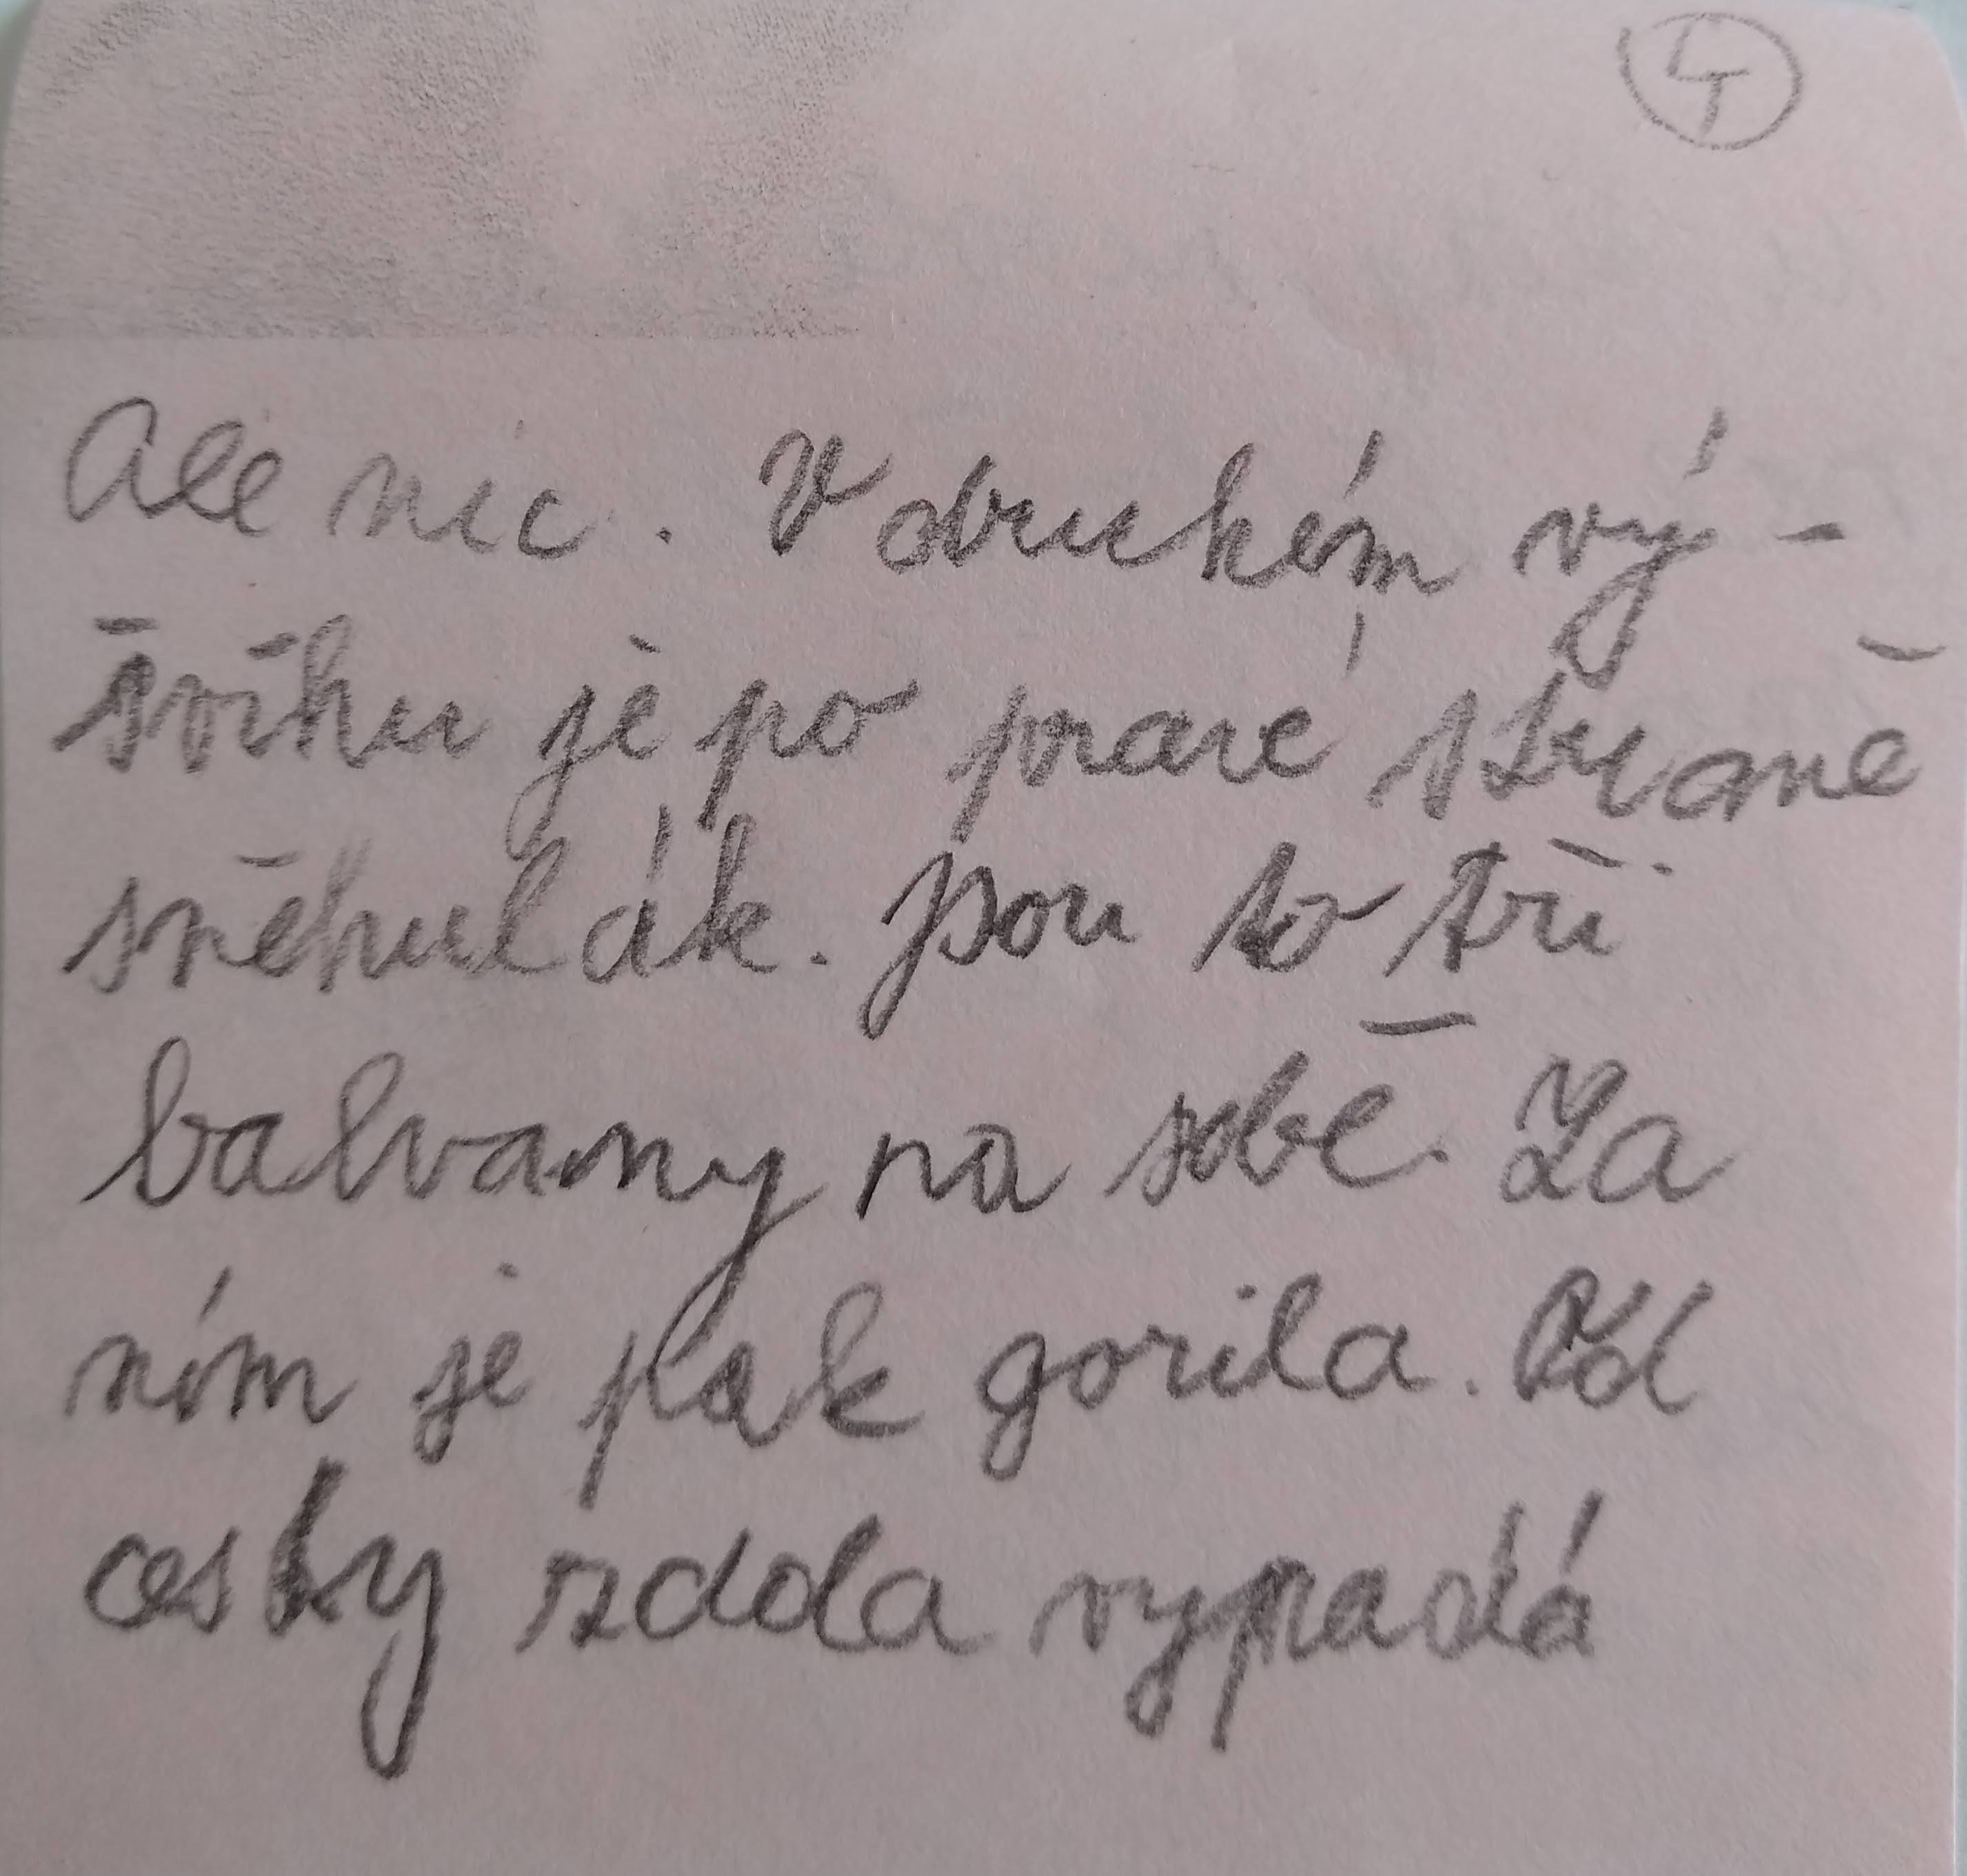 4
Ale nic. V druhém vý-
švihu je po pravé straně
sněhulák. Jsou to tři
balvany na sobě. Za
ním je pak gorila. Od
cesty zdola vypadá